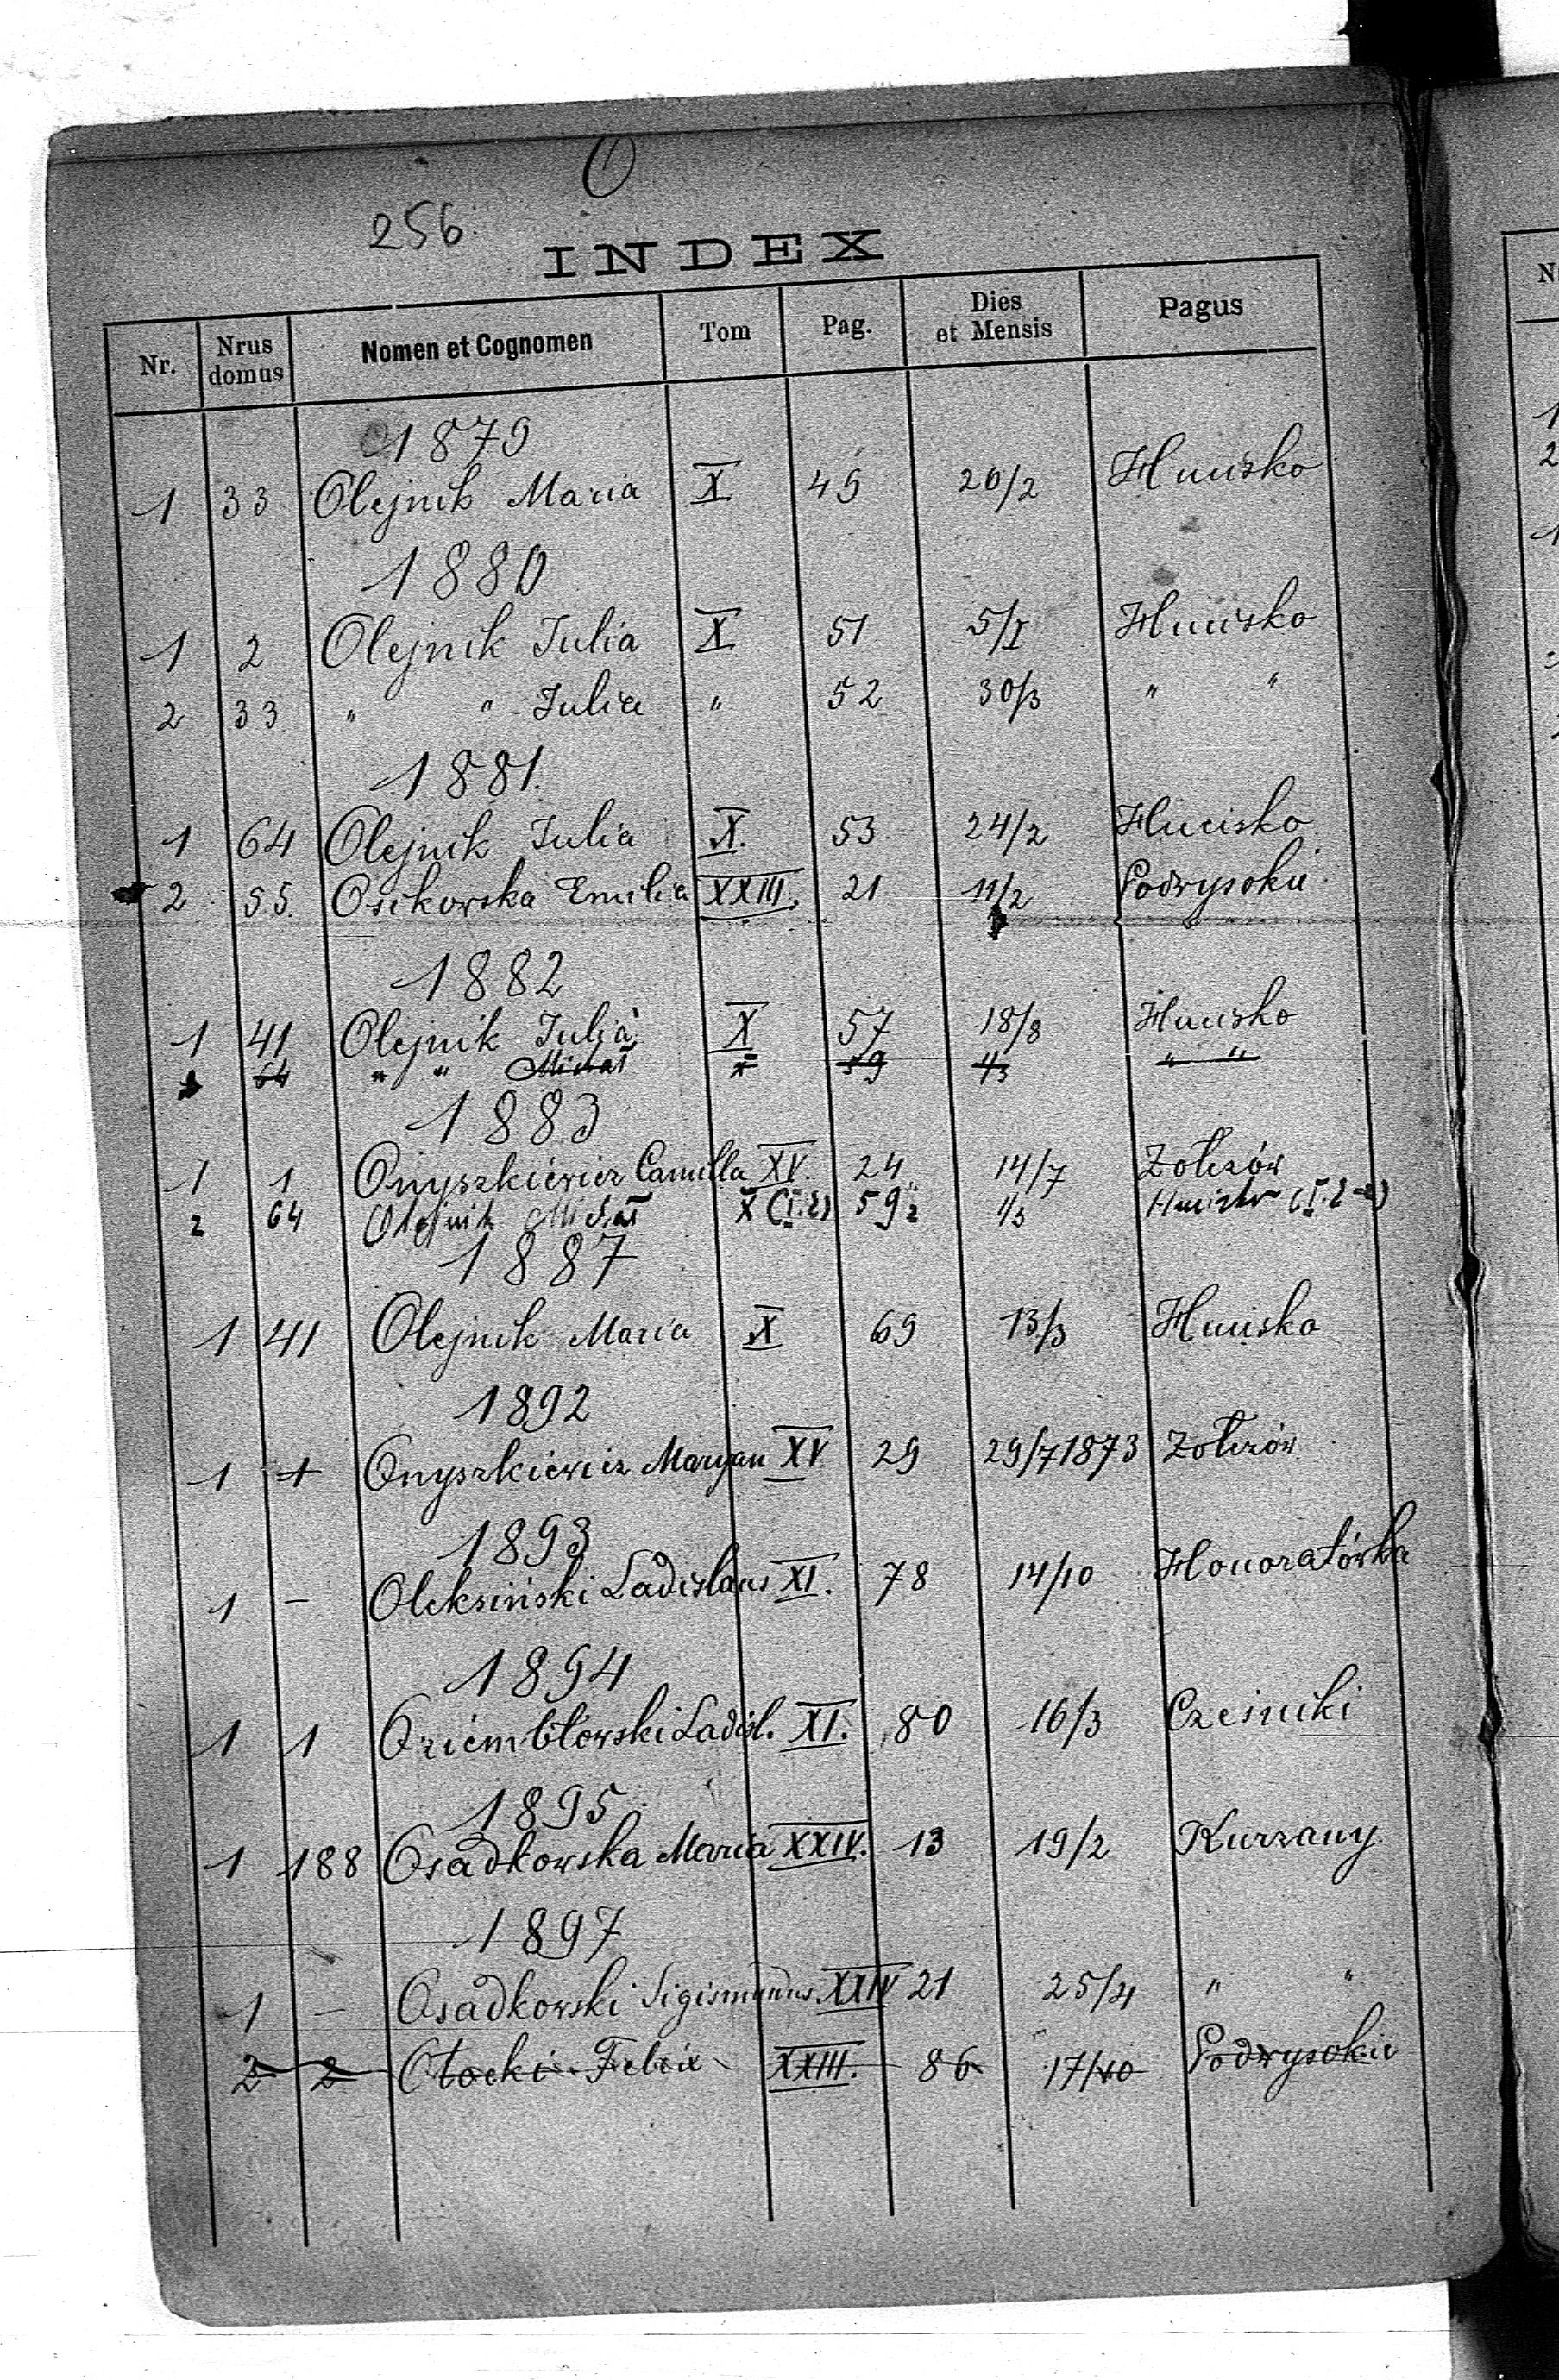 O
256.
INDEX
Nr. Nrus domus Nomen et Cognomen Tom Pag. Dies et Mensis Pagus
1879
1 33 Olejnik Maria X 49 20/2 Hucisko
1880
1 2 Olejnik Julia X 51 5/I Hucisko
2 33 " " Julia " 52 30/3 " "
1881.
1 64 Olejnik Julia X. 53 24/2 Hucisko
2 55. Osikowska Emilia XXIII. 21 11/2 Podwysokie
1882
1 41 Olejnik Julia X 57 18/8 Hucisko
64 " " Michał 59 1/3 " "
1883
1 1 Onyszkiewicz Camilla XV. 24 14/7 Żołczów
2 64 Olejnik Michał X 59 1/3 Hucisko
1887
1 41 Olejnik Maria X 69 13/3 Hucisko
1892
1 1 Onyszkiewicz Maryan XV 29 29/7 1873 Żołczów
1893
1 – Oleksiński Ladislaus XI. 78 14/10 Honoratówka
1894
1 1 Oziembłowski Ladisl. XI. 80 16/3 Cześniki
1895
1 188 Osadkowska Maria XXIV. 13 19/2 Kurzany
1897
1 – Osadkowski Sigismundus XXIV 21 25/4 " "
2 2 Otocki Felix XXIII. 86 17/10 Podwysokie
N
1
2
1